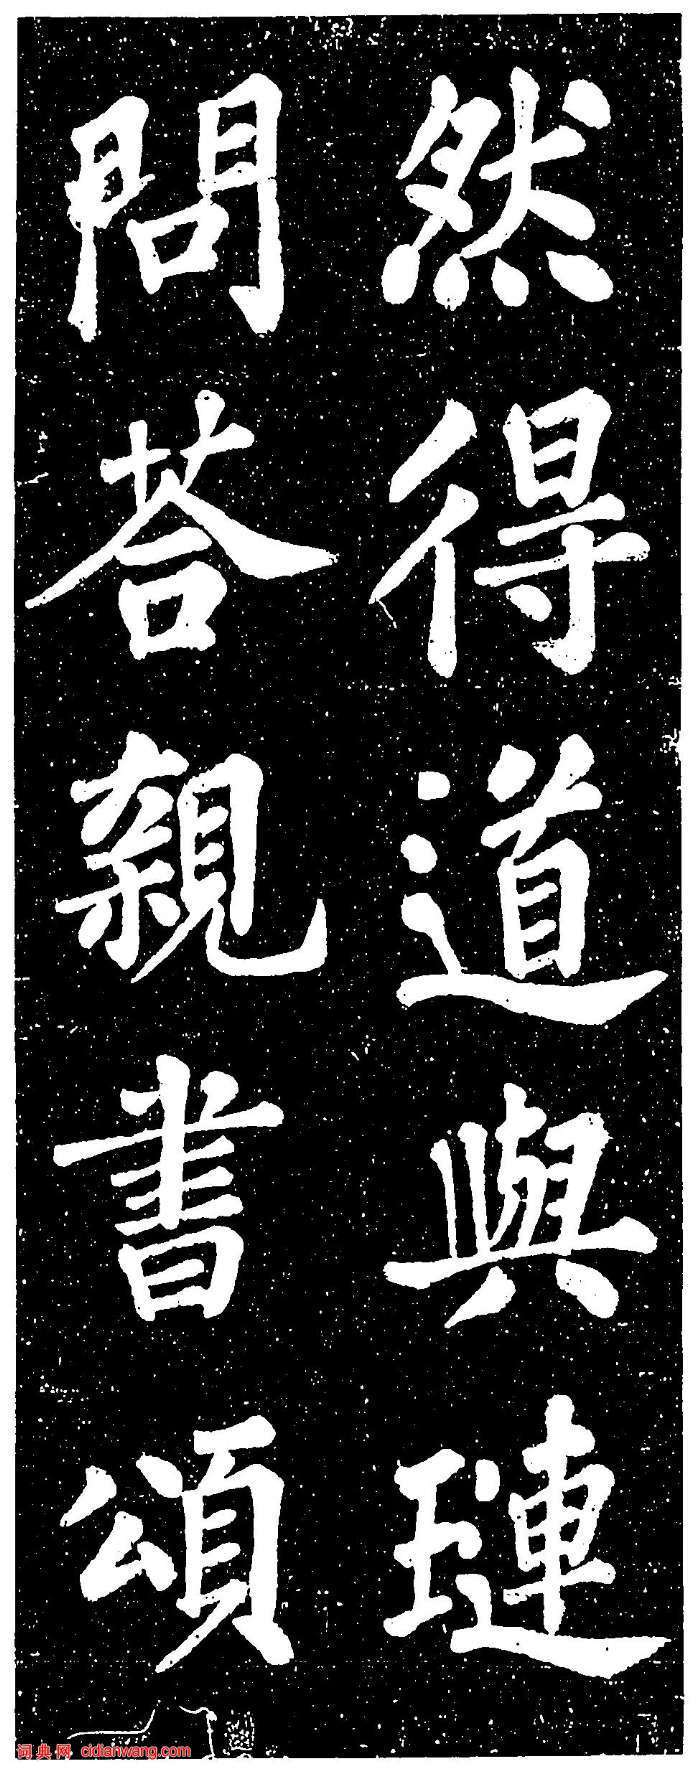 然得道與璉
問荅親書頌
词典网 cidianwang.com